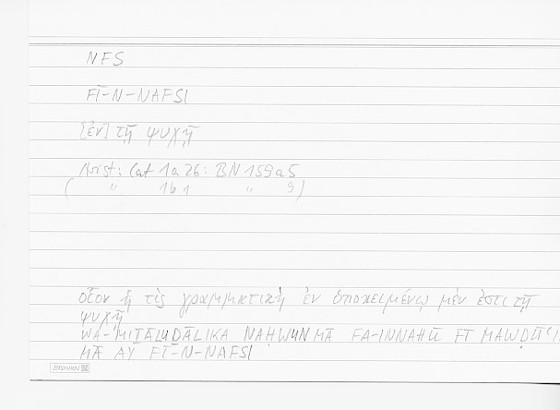 NFS
FĪ-N-NAFSI
[ἐν] τῇ ψυχῇ
Arist.: Cat 1a26: BN 159a5
( " 1b1 " 9)
οἷον ἡ τὶς γραμματικὴ ἐν ὑποκειμένῳ μέν ἐστι τῇ
ψυχῇ
WA-MIṮĀLU ḎĀLIKA NAḤWUN MĀ FA-INNAHŪ FĪ MAWḌŪʿI
MĀ AY FĪ-N-NAFSI